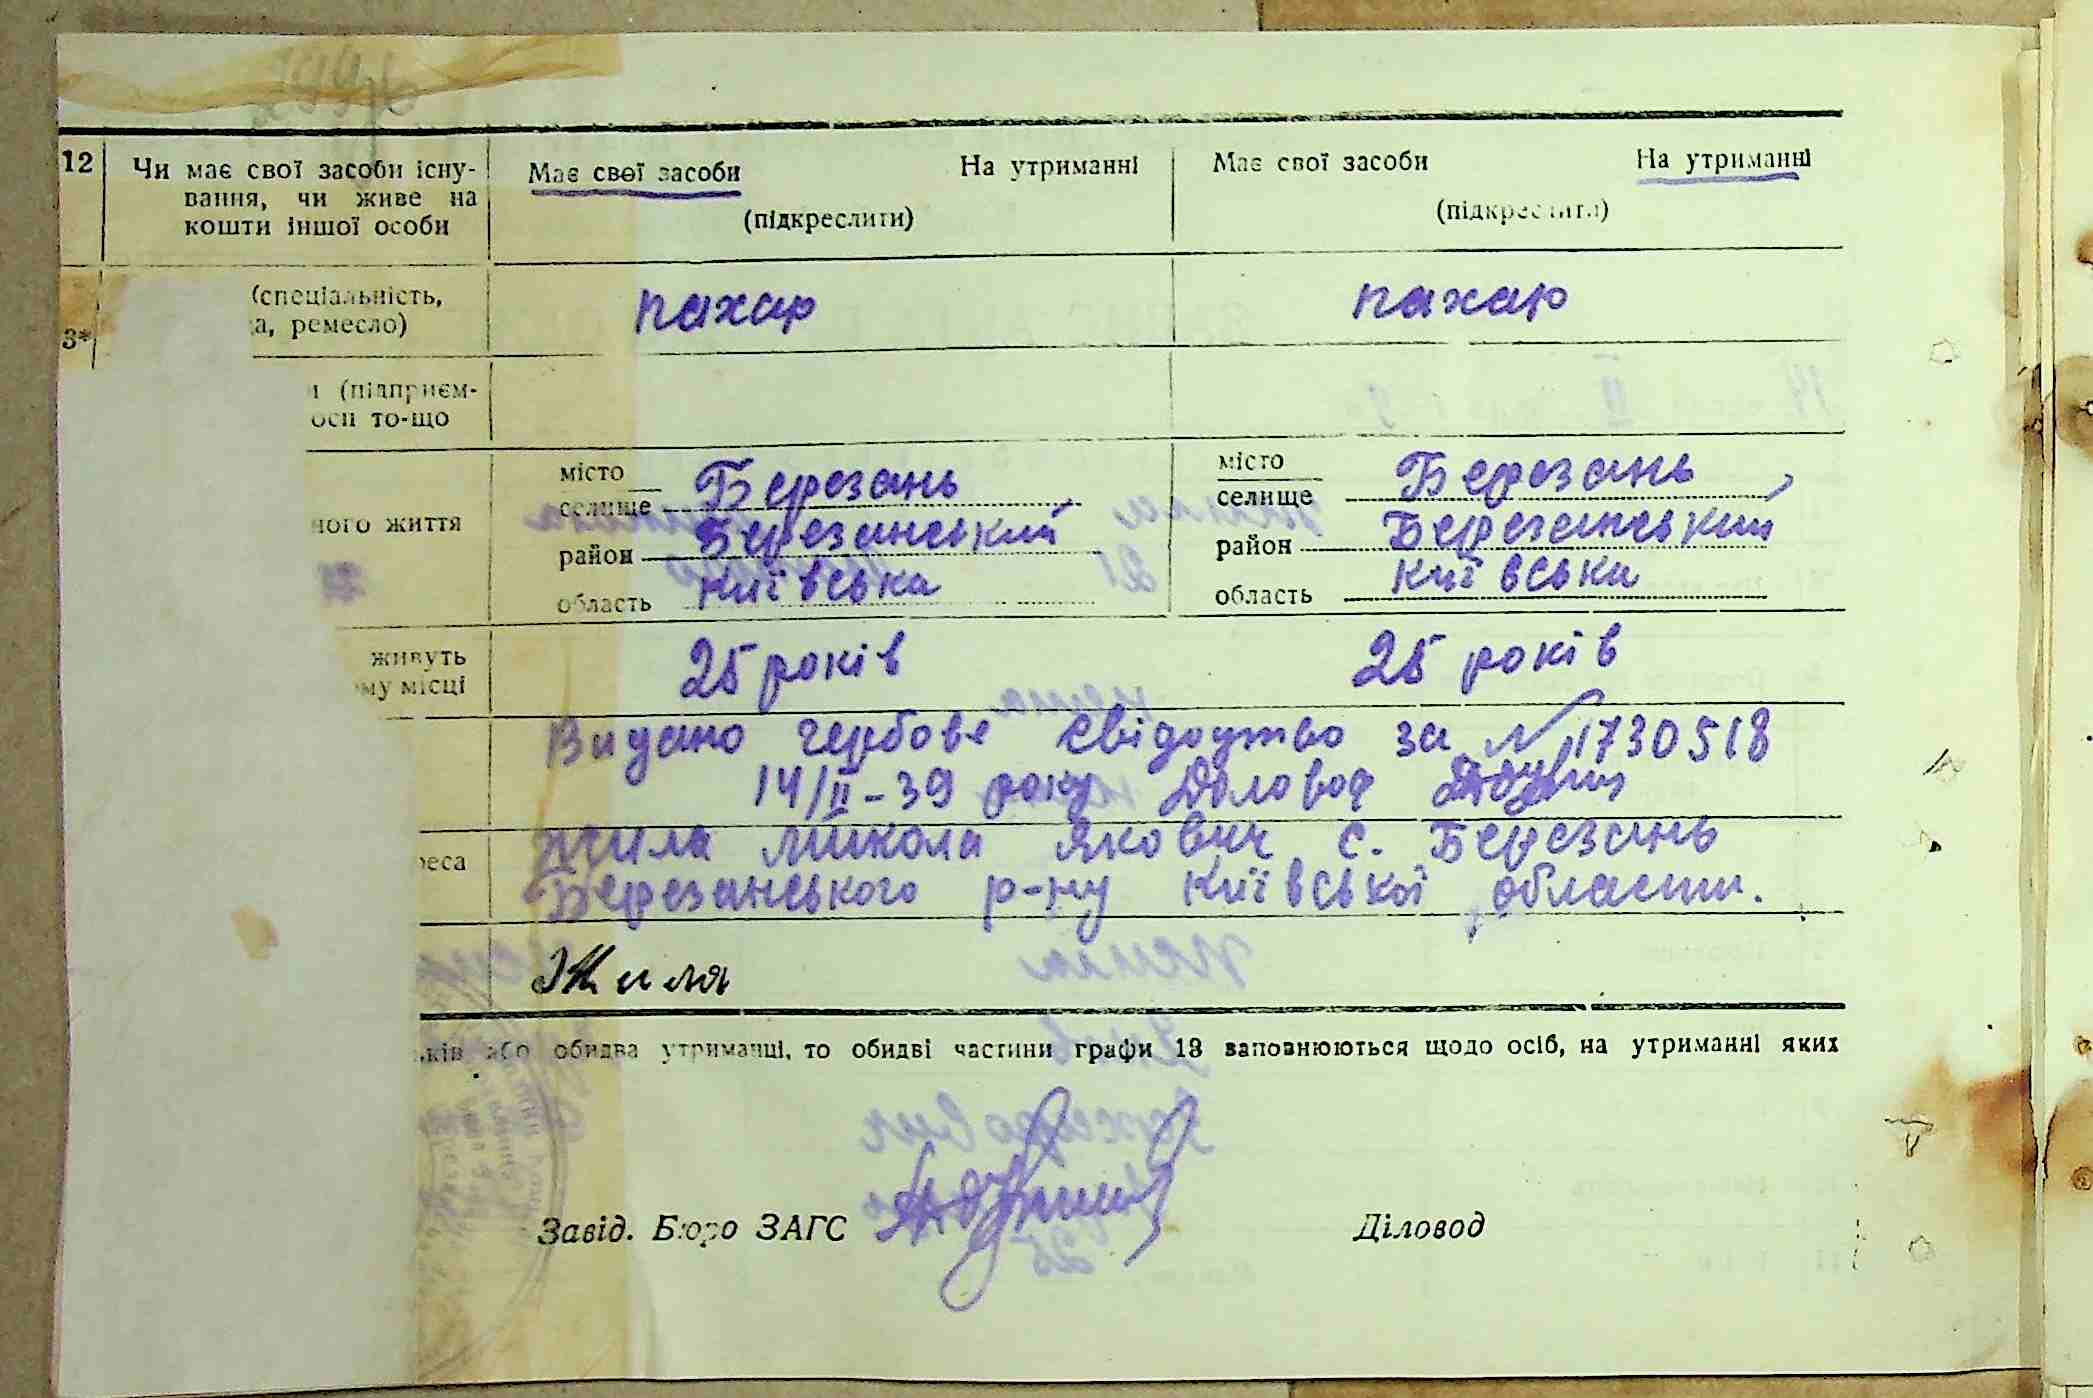 12 Чи має свої засоби існу- Має свої засоби На утриманні Має свої засоби На утриманні
вання, чи живе на
кошти іншої особи (підкреслити) (підкреслити)
(спеціальність, пахар пахар
3* а, ремесло)
и (підприєм-
оси то-що
місто Березань місто Березань
селище селище
ного життя район Березанський район Березанський
область Київська область Київська
живуть 25 років 25 років
ому місці
Видано гербове свідоцтво за № 1730518
14/II-39 року Діловод
реса Жила Микола Якович с. Березань
Березанського р-ну Київської области.
Жиля
ків або обидва утриманці, то обидві частини графи 13 заповнюються щодо осіб, на утриманні яких
Завід. Бюро ЗАГС Діловод